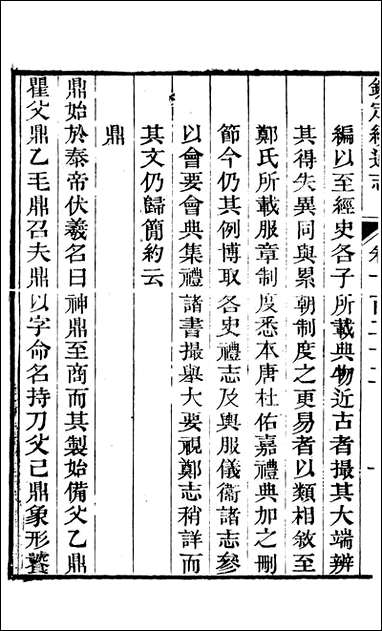 欽定續通志 卷一百二十二 一
編以至經史各子所載典物近古者撮其大端辨
其得失異同與累朝制度之更易者以類相敘至
鄭氏所載服章制度悉本唐杜佑嘉禮典加之刪
節今仍其例博取各史禮志及輿服儀衞諸志參
以會要會典集禮諸書撮舉大要視鄭志稍詳而
其文仍歸簡約云
鼎
鼎始於泰帝伏羲名曰神鼎至商而其製始備父乙鼎
瞿父鼎乙毛鼎召夫鼎以字命名持刀父己鼎象形饕